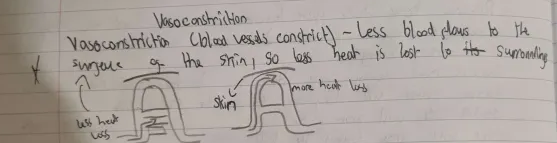 Vasoconstriction
Vasoconstriction (blood vessels constrict) - Less blood flows to the
surface of the skin, so less heat is lost to the surrounding
less heat
loss
skin
more heat loss